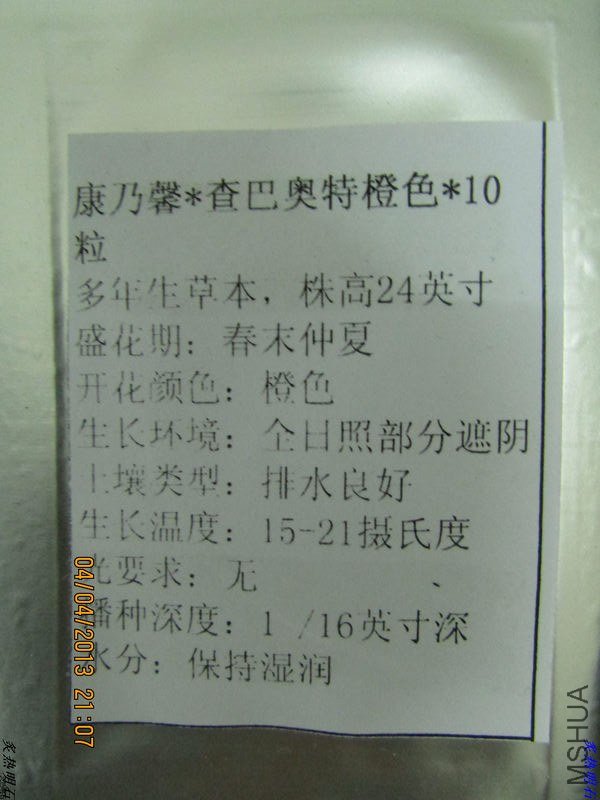 康乃馨*查巴奥特橙色*10
粒
多年生草本，株高24英寸
盛花期：春末仲夏
开花颜色：橙色
生长环境：全日照部分遮阴
土壤类型：排水良好
生长温度：15-21摄氏度
光要求：无 、
播种深度：1 /16英寸深
水分：保持湿润
04/04/2013 21:07
MSHUA